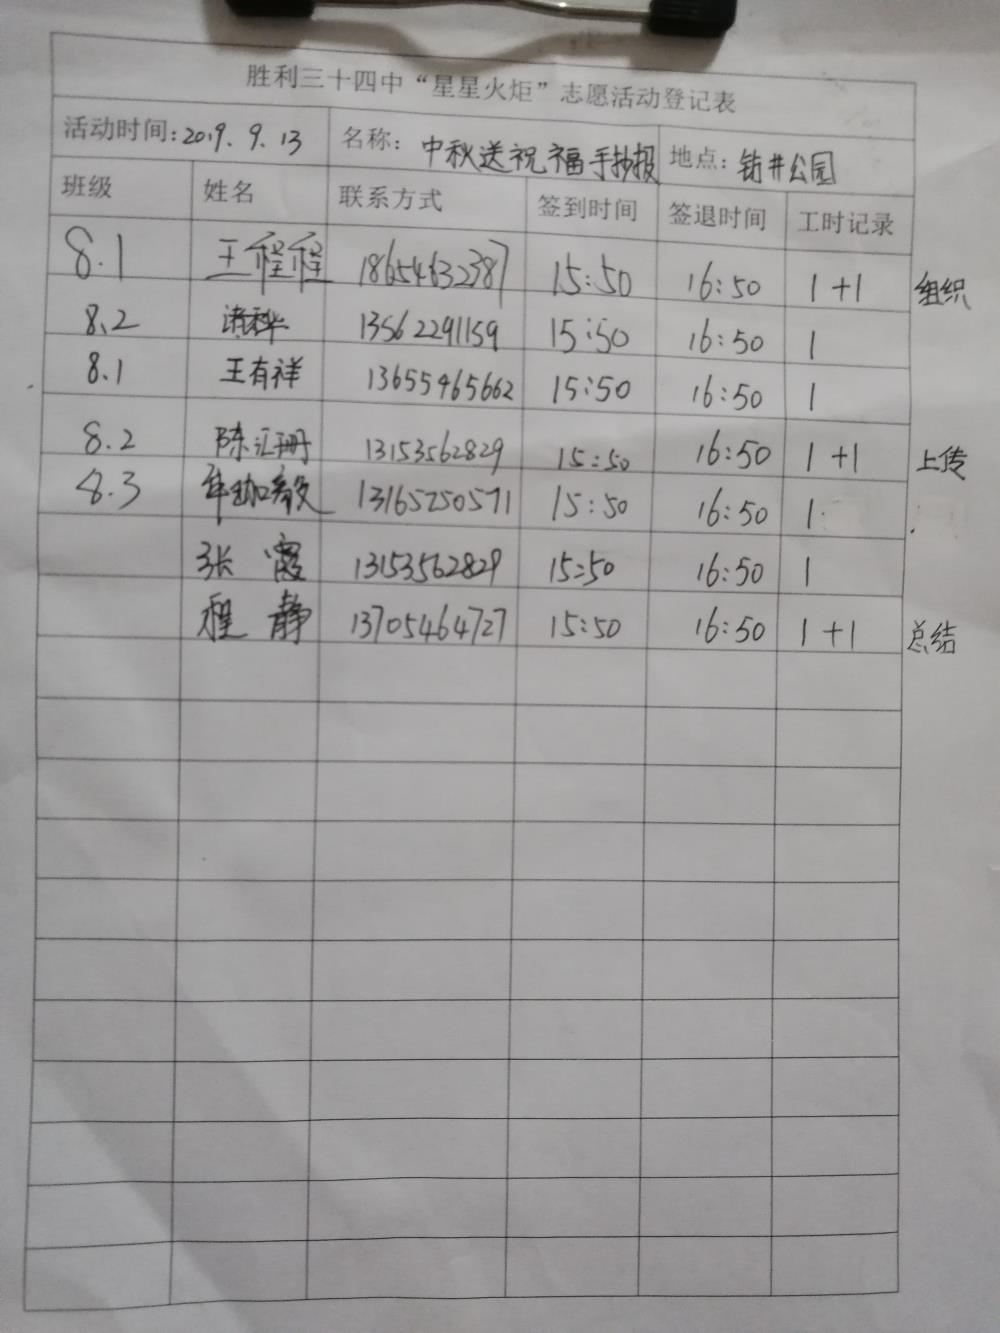 胜利三十四中“星星火炬”志愿活动登记表
活动时间:2019.9.13 名称: 中秋送祝福手抄报 地点: 钻井公园
班级 姓名 联系方式 签到时间 签退时间 工时记录
8.1 王程程 18654632387 15:50 16:50 1+1 组织
8.2 13562291159 15:50 16:50 1
8.1 王有祥 13655465662 15:50 16:50 1
8.2 陈汇珊 13153562829 15:50 16:50 1+1 上传
8.3 13165250571 15:50 16:50 1
张霞 13153562829 15:50 16:50 1
程静 13705464727 15:50 16:50 1+1 总结